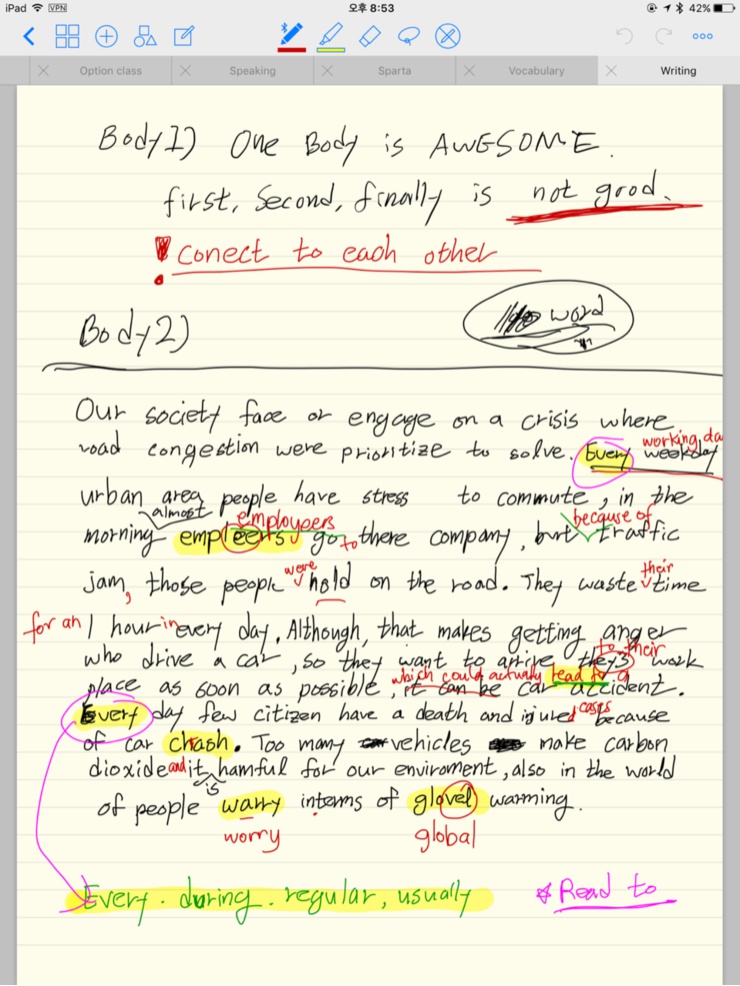 iPad VPN 오후 8:53 42%
Option class Speaking Sparta Vocabulary Writing
Body1) One Body is AWESOME.
first, Second, finally is not good.
! conect to each other
Body2)
word
Our society face or engage on a crisis where
working da
road congestion were prioritize to solve. Every weekday
urban area people have stress to commute, in the
almost employeers because of
morning empleers go to there company, but traffic
were their
jam, those people hold on the road. They waste time
for an 1 hour in every day. Although, that makes getting anger
to their
who drive a car, so they want to arrive they's work
which could actually lead to a
place as soon as possible, it can be car accident.
cases
Every day few citizen have a death and injured because
of car chash. Too many vehicles make carbon
dioxide and it hamful for our enviroment, also in the world
is
of people warry interms of glovel warming.
worry global
Every. during. regular, usually * Read to